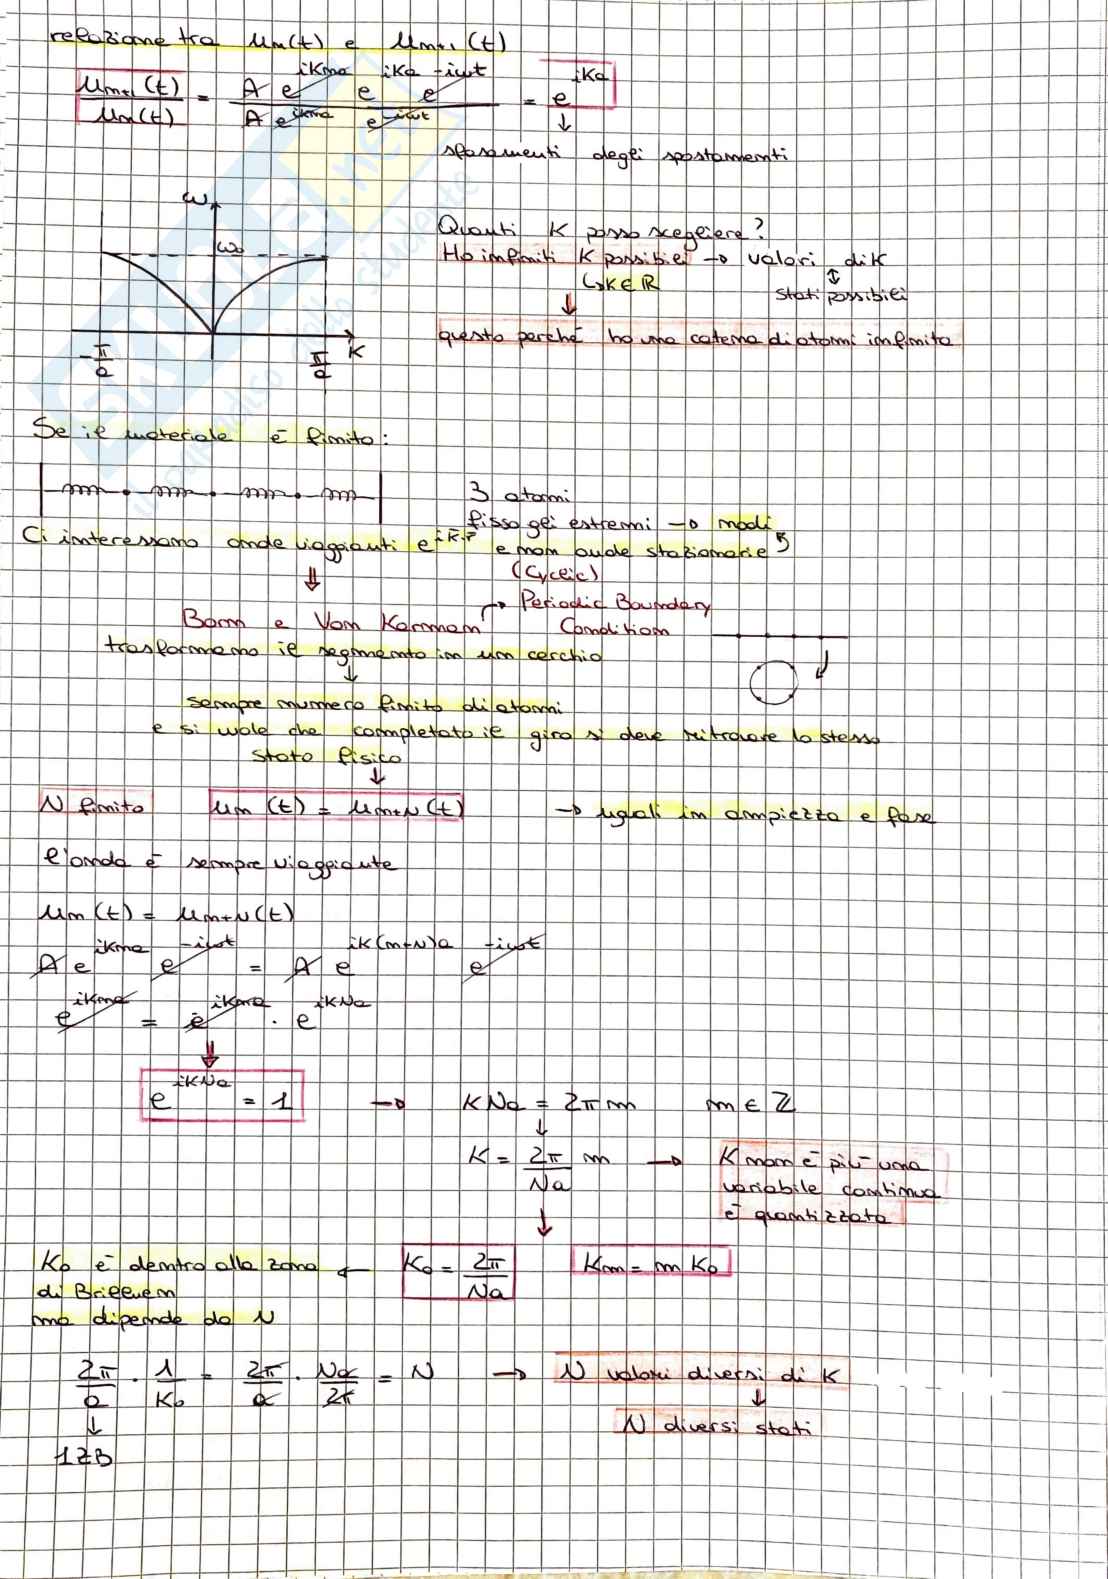 relazione tra un(t) e un+1(t)
un+1(t) / un(t) = A e^ikna e^ika e^-iωt / A e^ikna e^-iωt = e^ika
↓
sfasamenti degli spostamenti
ω
ω0
-π/a
π/a
K
Quanti K posso scegliere?
Ho infiniti K possibili → valori di K
↳ K ∈ ℝ
↕
stati possibili
↓
questo perché ho una catena di atomi infinita
Se il materiale è finito:
3 atomi
fisso gli estremi → modi
Ci interessano onde viaggianti e^ik·r e non onde stazionarie
⇓
(Cyclic)
Born e Von Karman → Periodic Boundary
Condition
trasformano il segmento in un cerchio
↓
sempre numero finito di atomi
e si vuole che completato il giro si deve ritrovare lo stesso
stato fisico
↓
N finito un(t) = un+N(t) → uguali in ampiezza e fase
l'onda è sempre viaggiante
un(t) = un+N(t)
A e^ikna e^-iωt = A e^ik(n+N)a e^-iωt
e^ikna = e^ikna · e^ikNa
⇓
e^ikNa = 1 → KNa = 2πm m ∈ ℤ
↓
K = 2π/Na m → K non è più una
variabile continua
è quantizzata
↓
K0 è dentro alla zona ← K0 = 2π/Na Km = m K0
di Brillouin
ma dipende da N
2π/a · 1/K0 = 2π/a · Na/2π = N → N valori diversi di K
↓ ↓
1ZB N diversi stati